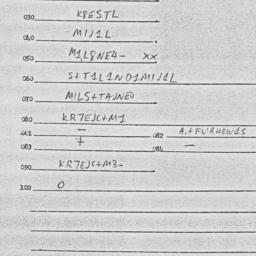 030 K8ESTL
040 MIJ1L
050 M1L8NE4- XX
060 S+T1L1ND1MIJ1L
070 MILS+TAJNE4
080 KR7EJC+M1
081 - 082 A.+FURHOW1S
083 + 084 -
090 KR7EJC+M3-
100 O